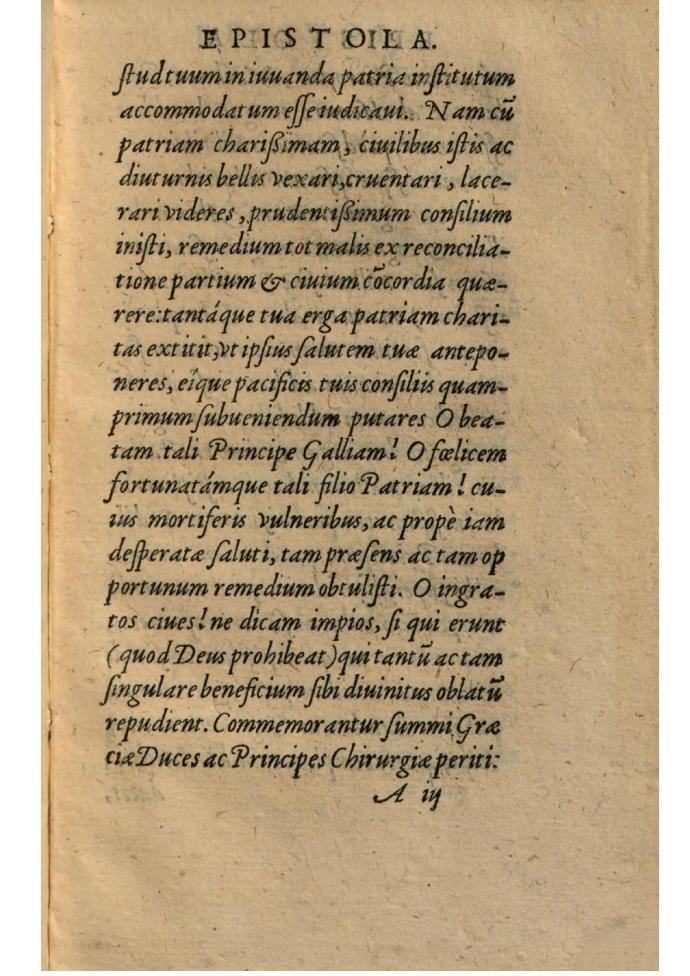 EPISTOLA.
ſtud tuum in iuuanda patria inſtitutum
accommodatum eſſe iudicaui. Nam cū
patriam chariſsimam, ciuilibus iſtis ac
diuturnis bellis vexari, cruentari, lace-
rari videres, prudentiſsimum conſilium
iniſti, remedium tot malis ex reconcilia-
tione partium & ciuium cōcordia quæ-
rere: tantáque tua erga patriam chari-
tas extitit, vt ipſius ſalutem tuæ antepo-
neres, eíque pacificis tuis conſiliis quam-
primum ſubueniendum putares O bea-
tam tali Principe Galliam! O fœlicem
fortunatámque tali filio Patriam! cu-
ius mortiferis vulneribus, ac propè iam
deſperatæ ſaluti, tam præſens ac tam op
portunum remedium obtuliſti. O ingra-
tos ciues! ne dicam impios, ſi qui erunt
(quod Deus prohibeat) qui tantū ac tam
ſingulare beneficium ſibi diuinitus oblatū
repudient. Commemorantur ſummi Græ
ciæ Duces ac Principes Chirurgiæ periti:
A iij